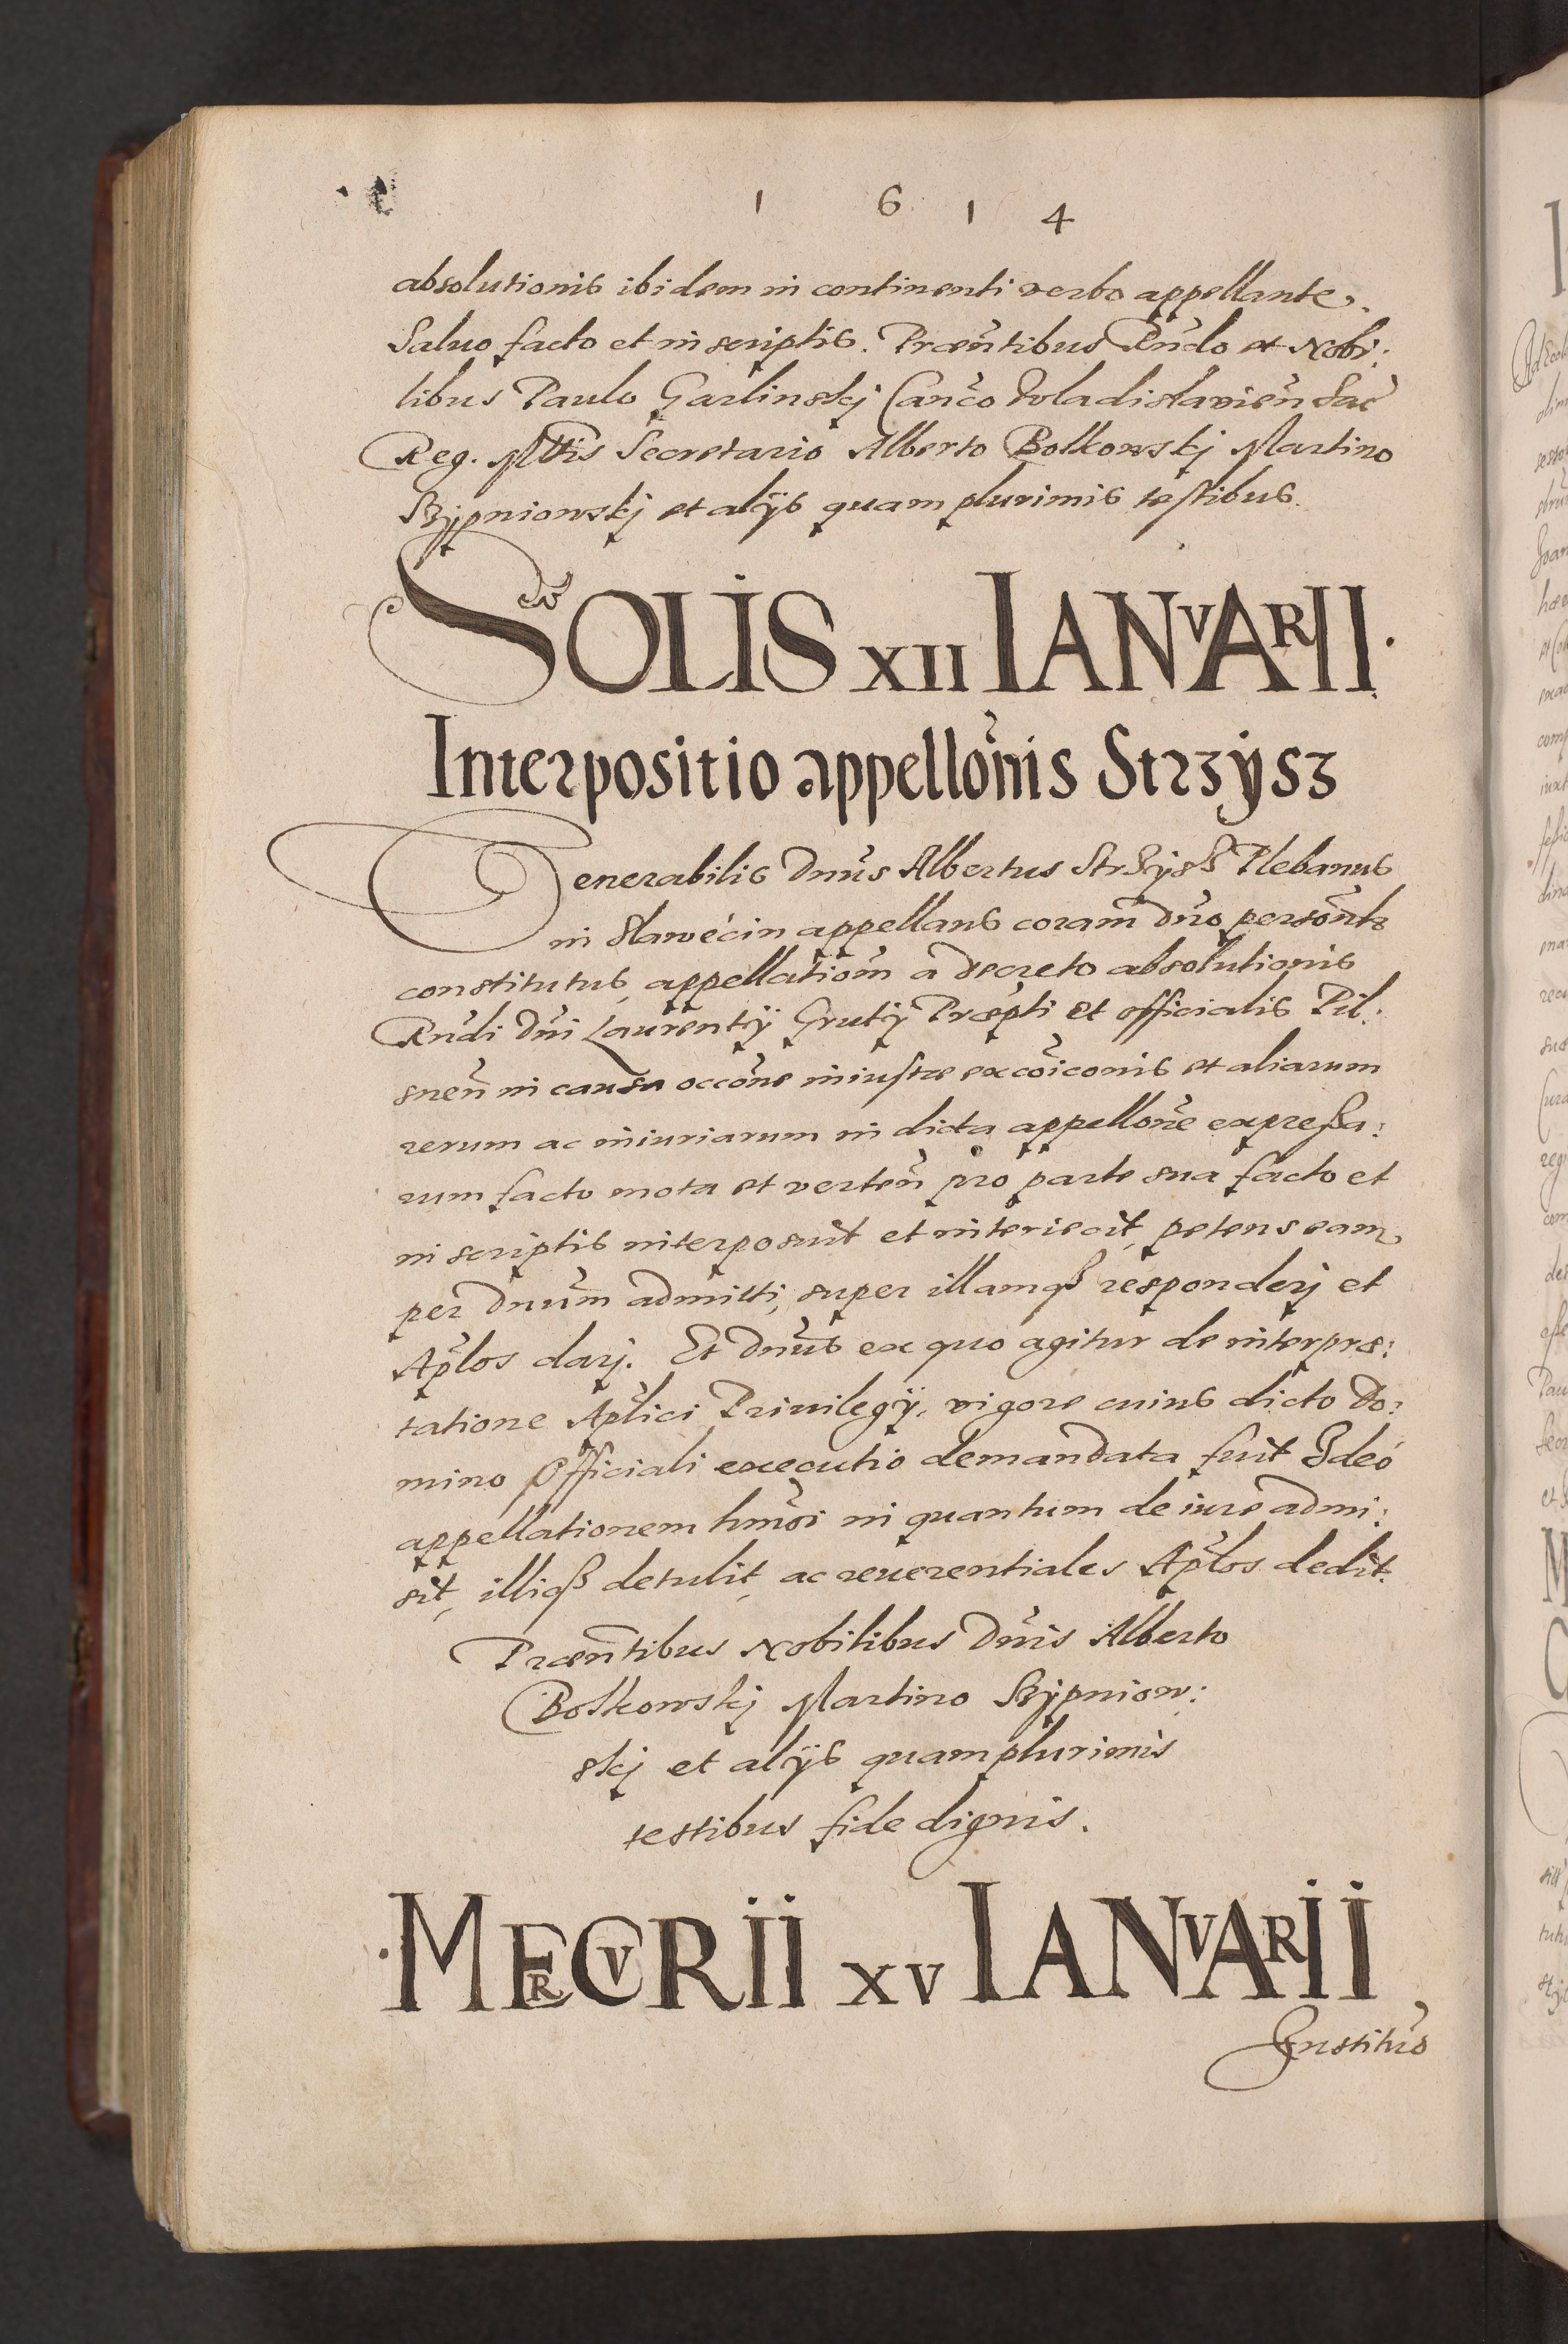 1 6 1 4
absolutionis ibidem in continenti verbo appellante.
Saluo facto et in scriptis. Præñtibus Rñdo et Nobi:
libus Paulo Garlinskj Canco Vladislavień Sac
Reg. Mttis Secretario Alberto Bolkowskj Martino
Rzypniowskj et alijs quam plurimis testibus.
SOLIS XII IANVARII.
Interpositio appellonis Strzysz
Venerabilis Dnus Albertus Strzysz Plebanus
in Slawécin appellans coram dno personlr
constitutus, appellatiom a decreto absolutionis
Rndi Dni Laurentij Grutij Præpti et officialis Pil:
sneñ in causa occone iniustæ excoiconis et aliarum
rerum ac iniuriarum in dicta appellone expreßa:
rum facto mota et verteñ pro parte sua facto et
in scriptis interposuit et interiecit, petens eam
per Dnum admitti, super illamqȝ responderj et
Aplos darj. Et Dnus ex quo agitur de interpræ:
tatione Aplici Priuilegij, vigore cuius dicto Do:
mino Officiali executio demandata fuit Ideó
appellationem hmoi in quantum de iure admi:
sit, illiqȝ detulit, ac reuerentiales Aplos dedit.
Præñtibus Nobilibus Dnis Alberto
Bolkowskj Martino Rzypniow:
skj et alijs quamplurimis
testibus fide dignis.
MERCVRII XV IANVARII
Institus